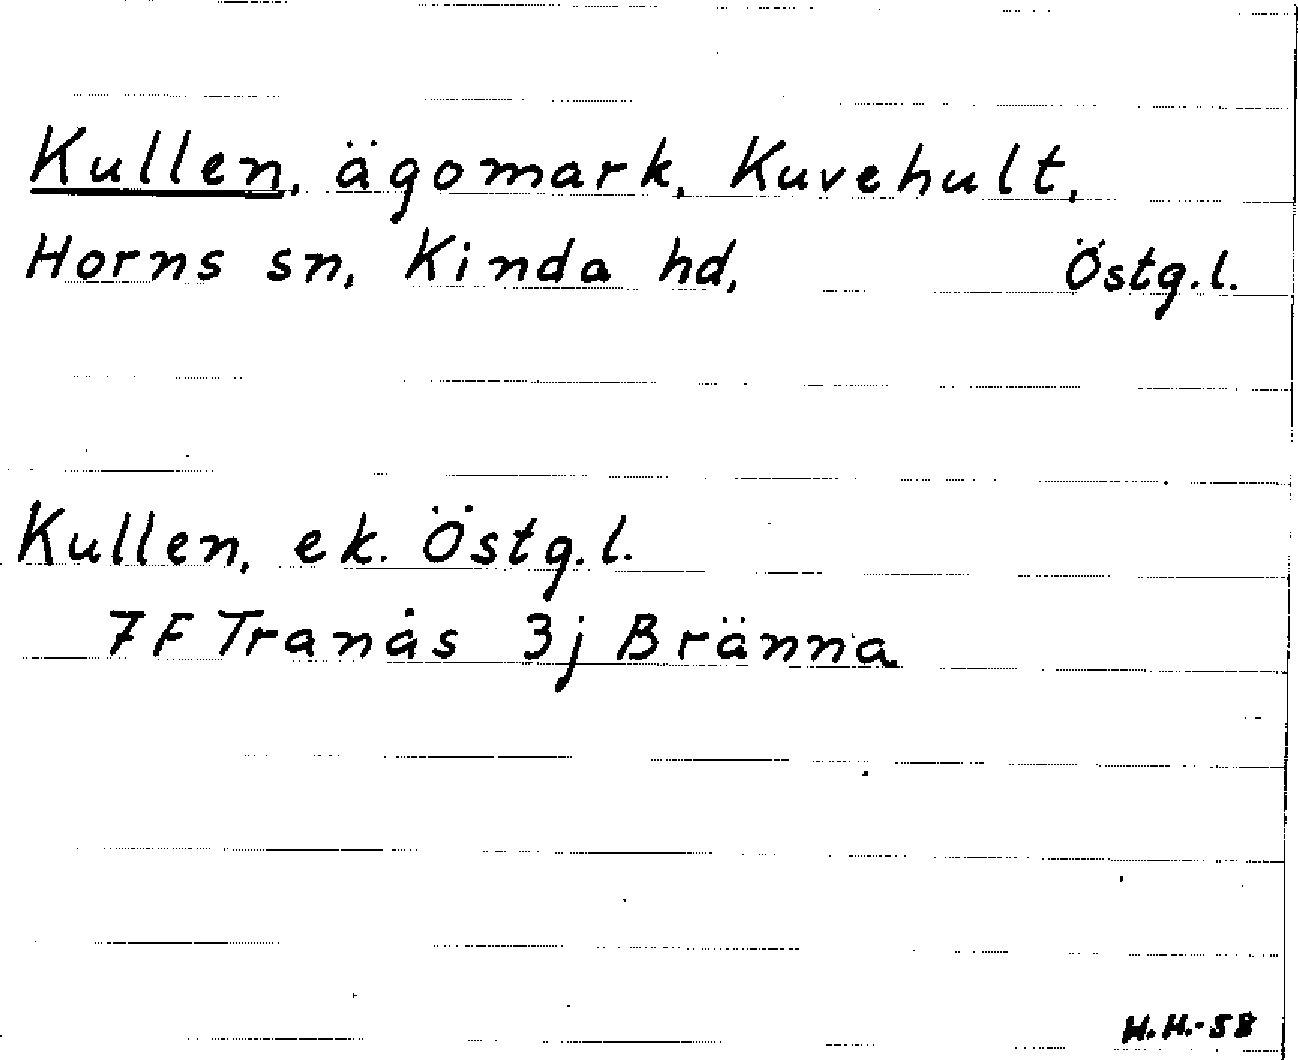 Kullen, ägomark, Kuvehult,
Horns sn, Kinda hd, Östg.l.
Kullen, ek. Östg.l.
7F Tranås 3j Bränna
H.H.-58